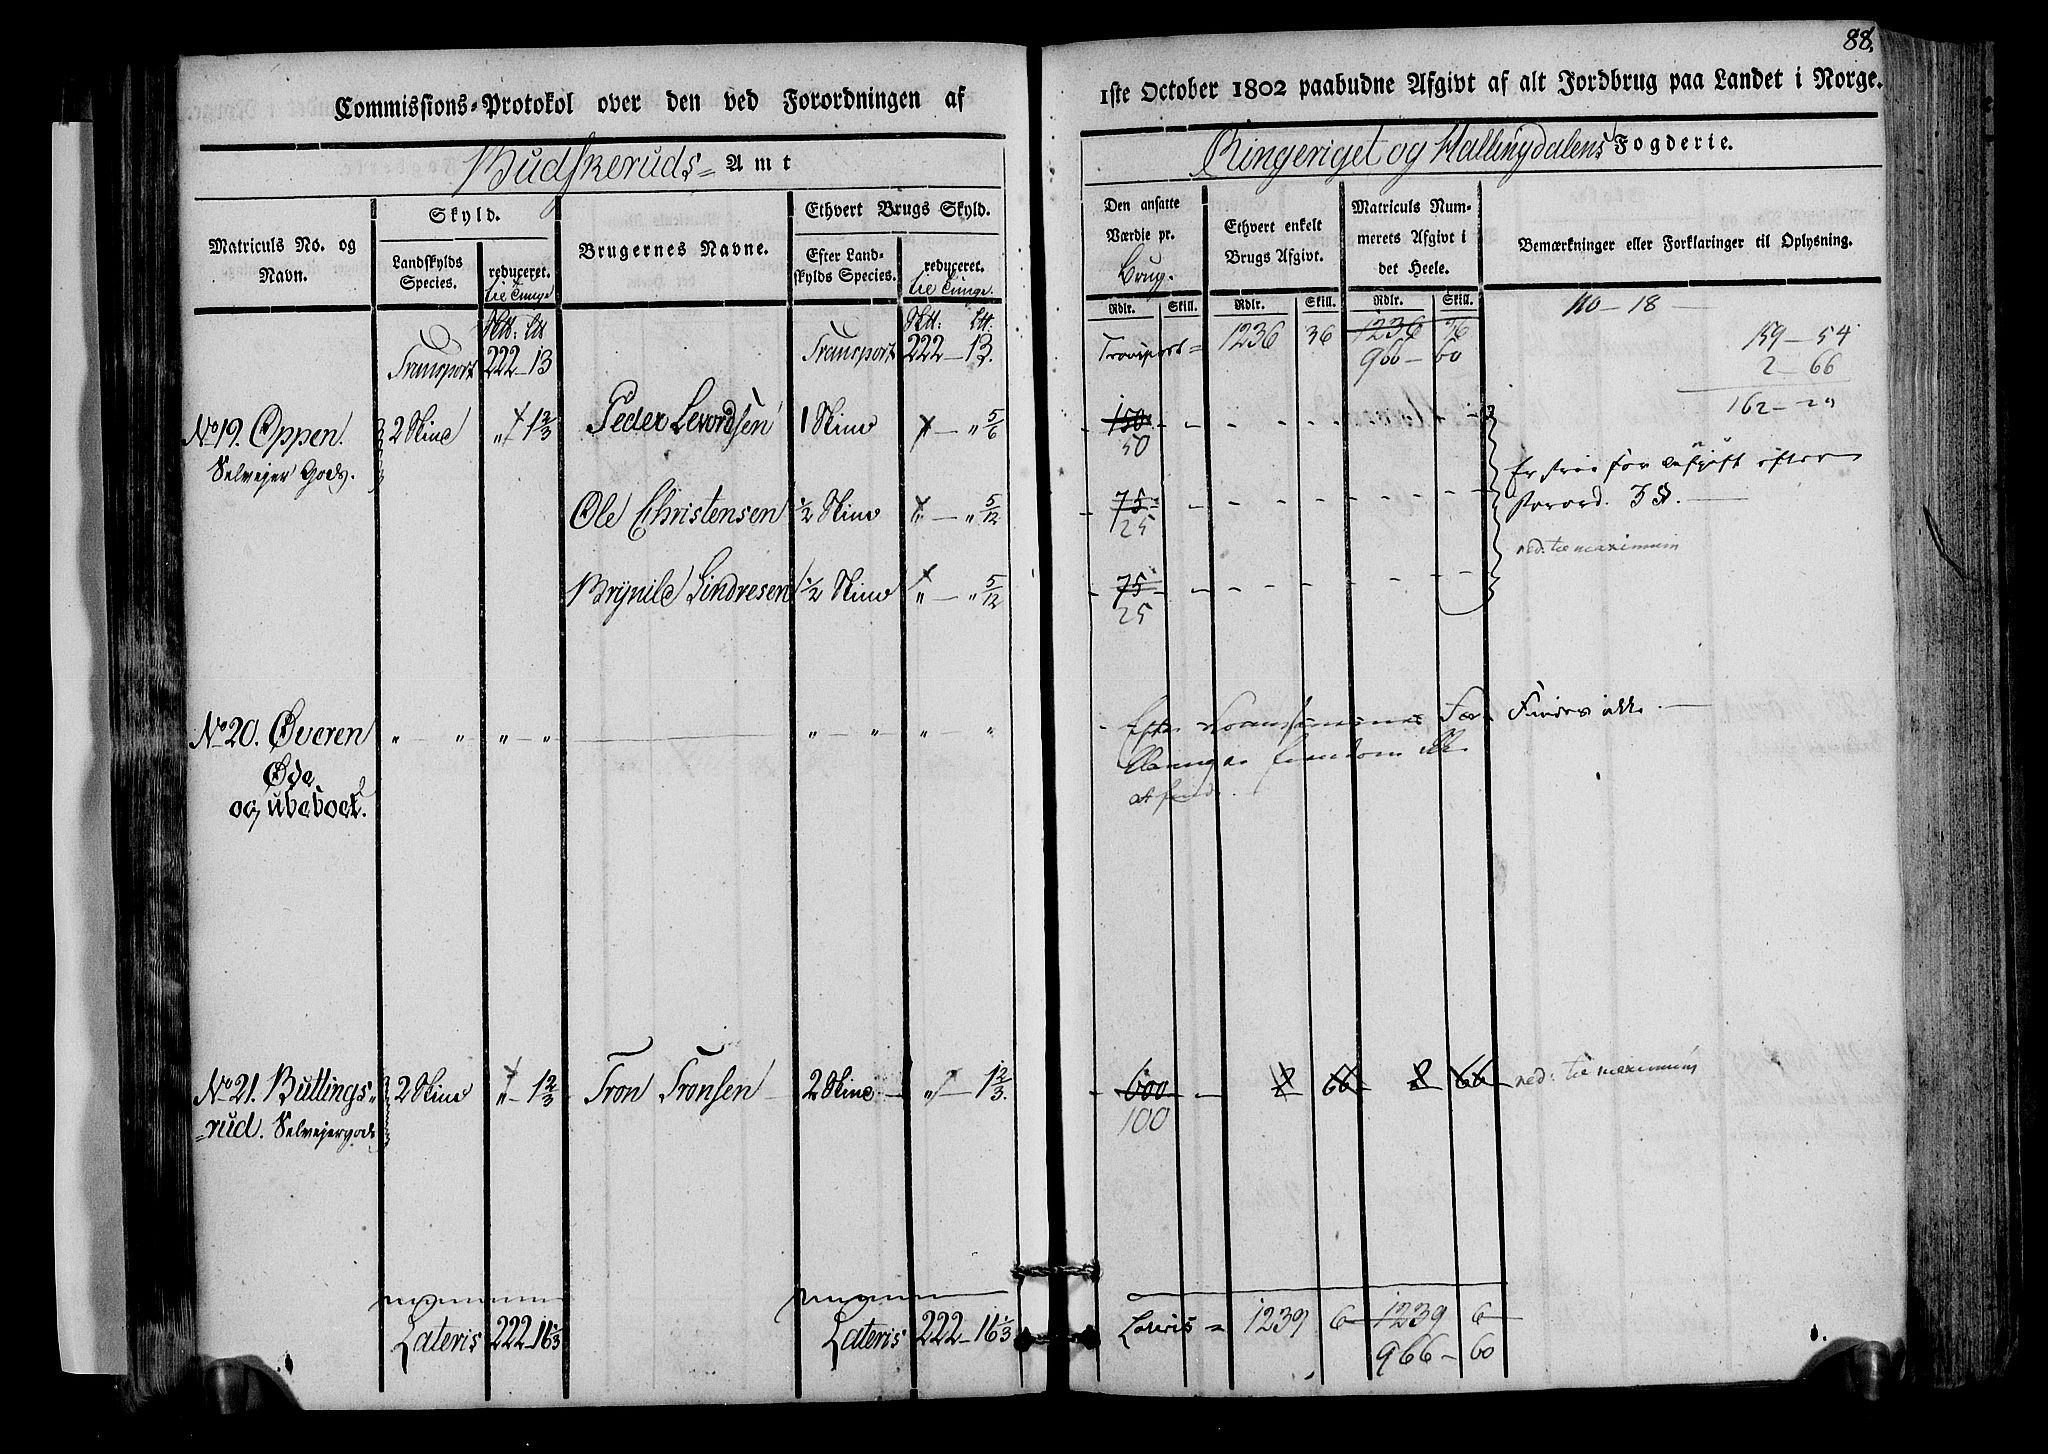 88.
Commissions-Protokol over den ved Forordningen af
1ste October 1802 paabudne Afgivt af alt Jordbrug paa Landet i Norge.
Budskeruds Amt
Ringeriget og Hallingdalens Fogderie.
Matriculs No. og Navn.
Skyld.
Landskylds Species.
reduceret. til Tunge
Brugernes Navne.
Ethvert Brugs Skyld.
Efter Landskylds Species.
reduceret. til Tunge.
Den ansatte Værdie pr. Brug.
Rdlr. Skill.
Ethvert enkelt Brugs Afgivt.
Rdlr. Skill.
Matriculs Nummerets Afgivt i det Heele.
Rdlr. Skill.
Bemærkninger eller Forklaringer til Oplysning.
Transport 222-13 Transport 222-13. Transport= 1236 36 1236 36
966-60
110-18
159-54
2-66
162-24
No 19. Oppen. 2 Skind 1 2/3 Peder 1 Skind 5/6 150
50
Selvejer Gods.
Er frie for Afgift efter
Forord. 3 §.
Ole Christensen 1/2 Skind 5/12 75
25
red: til maximum
1/2 Skind 5/12 75
25
No 20. Øveren
Øde
og ubeboet.
Efter
Findes ikke.
No 21. Buttings-
rud. Selvejergods
2 Skind 1 2/3 Tron Tronsen 2 Skind 1 2/3. 600 2 66 2 66 red: til maximum
100
Lateris 222-16 1/3 Lateris 222-16 1/3 Lateris = 1239 6 1239 6
966-60